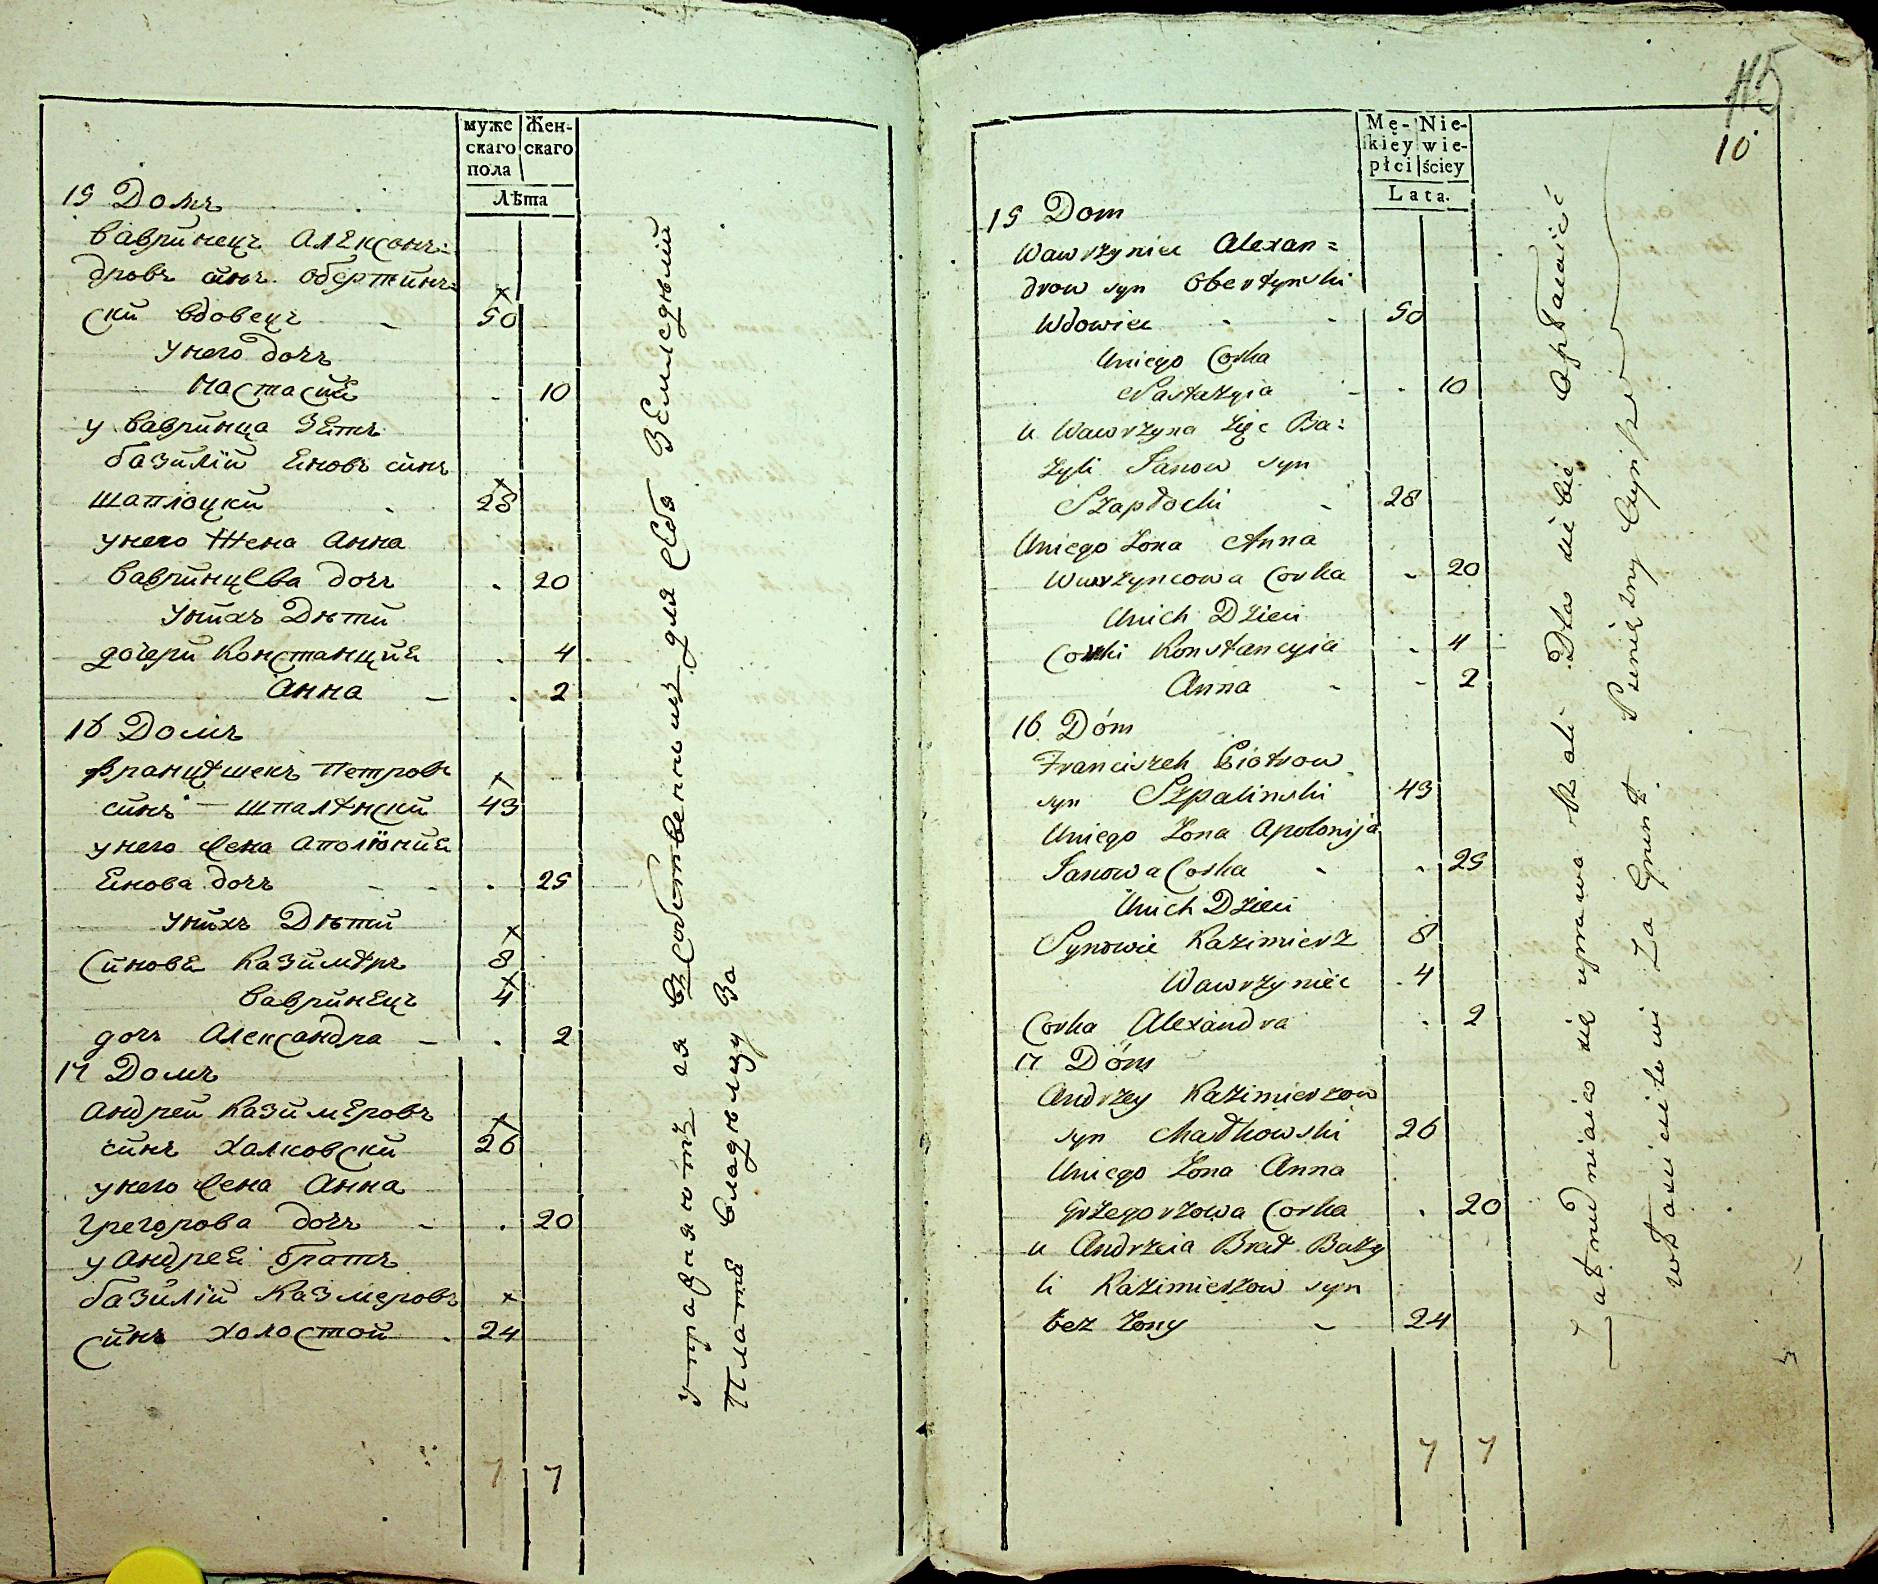 муже Жен-
скаго скаго
пола
Лѣта
15 Домъ
Вавринецъ Алексон=
дровъ синъ Обертинъ=
ски вдовец 50
У него дочъ
Настасия 10
у Вавринца Зетъ
базилiй Янов синъ
шаплоцки 28
у него Жена Анна
Вавринцева дочъ 20
Унихъ Дѣти
дочери Констанция 4
Анна 2
16 Домъ
Францишекъ Петровъ
синъ — шпалѣнски 43
у него жена Аполюния
Янова дочъ 25
унихъ Дѣти
Синовя Казимѣръ 8
Вавринецъ 4
дочъ Александра 2
17 Домъ
Андрей Казимеровъ
синъ Халковски 26
у него жена Анна
Грегорова дочъ 20
у Андрея братъ
базилiй Казмеровъ
Синъ холостой 24
7 7
Упражняютъ ся в собственнихъ для себя Земледѣлiй
Плата владѣлцу за
115
10
Mę- Nie-
kiey wie-
płci ściey
Lata.
15 Dom
Wawrzyniec Alexan=
drow syn Obertynski
Wdowiec 50
Uniego Corka
Nastazyia 10
u Wawrzyna Zięc Ba=
zyli Janow syn
Szapłocki 28
Uniego Zona Anna
Wawrzyncowa Corka 20
Unich Dzieci
Corki Konstancyia 4
Anna 2
16 Dóm
Franciszek Piotrow
syn Szpalinski 43
Uniego Zona Apolonija
Janowa Corka 25
Unich Dzieci
Synowie Kazimierz 8
Wawrzyniec 4
Corka Alexandra 2
17 Dóm
Andrzey Kazimierzow
syn Chałkowski 26
Uniego Zona Anna
Grzegorzowa Corka 20
u Andrzeia Brat Bazy
li Kazimierzow syn
bez Zony 24
7 7
Zatrudniaią się uprawą Roli Dla siebie Opłacaiąć
włascicielowi Za Grunt Pieniężny Czynsz